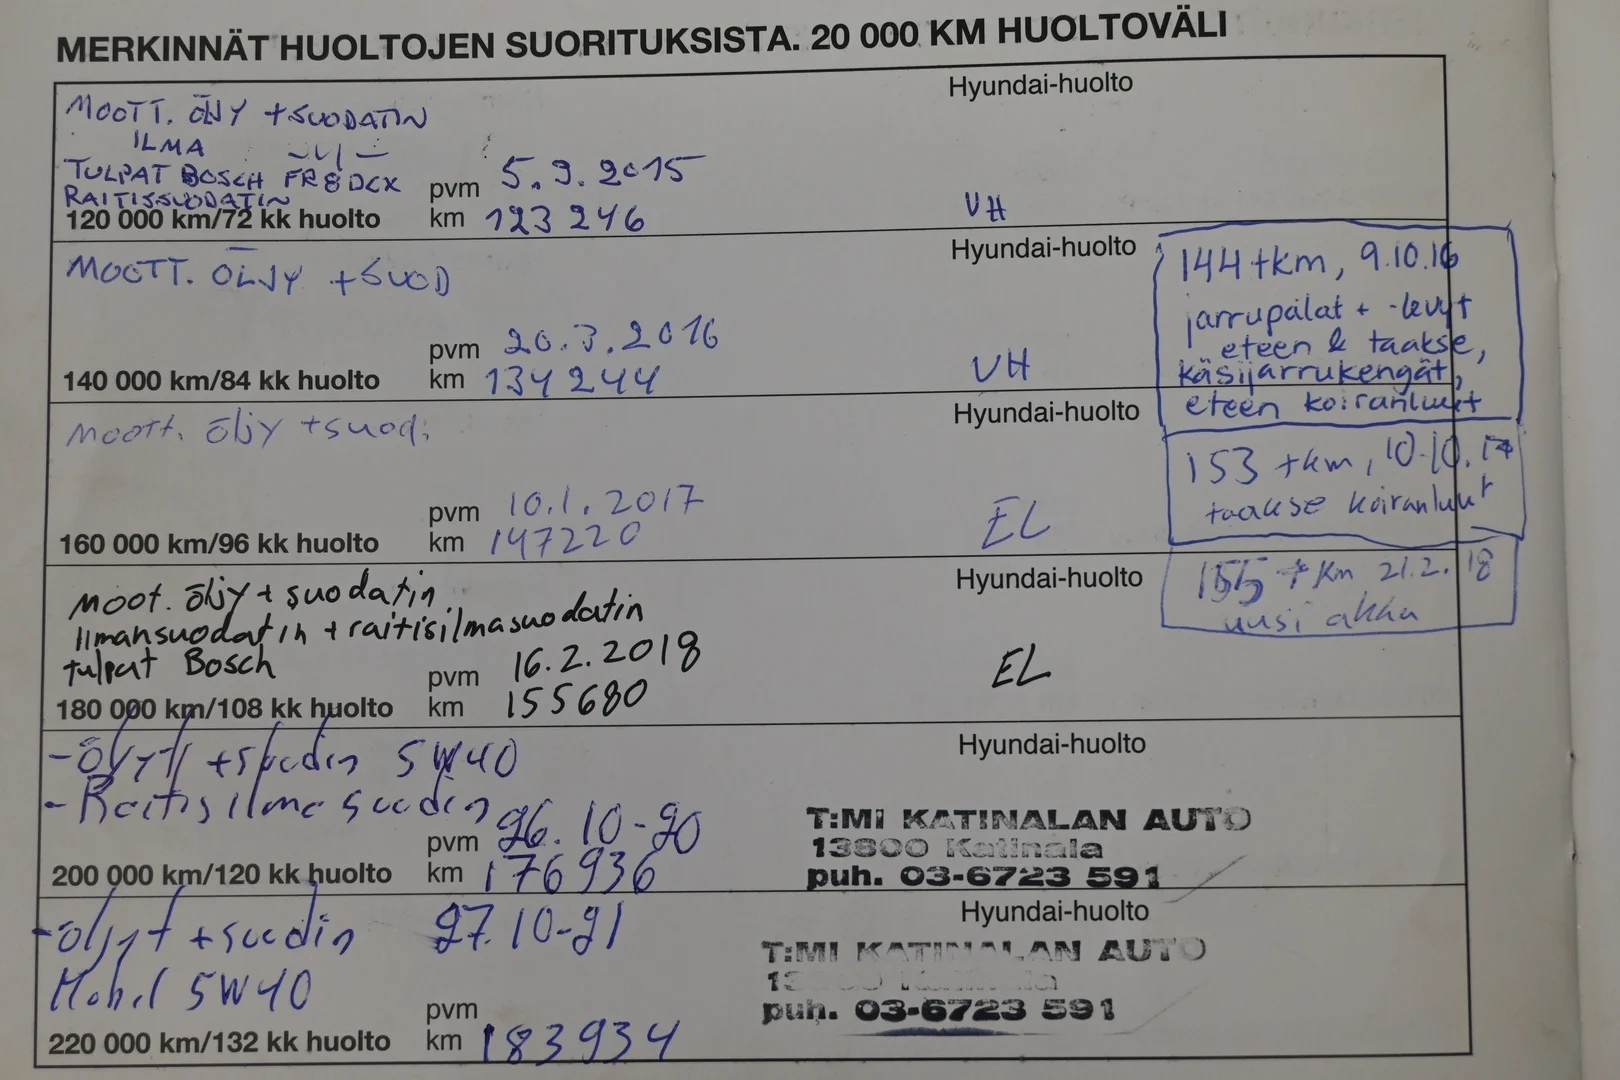 MERKINNÄT HUOLTOJEN SUORITUKSISTA. 20 000 KM HUOLTOVÄLI
Hyundai-huolto
MOOTT. ÖLJY +SUODATIN
ILMA -"-
TULPAT BOSCH FR8DCX
RAITISSUODATIN
pvm 5.9.2015
120 000 km/72 kk huolto km 123 246
VH
Hyundai-huolto
MOOTT. ÖLJY +SUOD
pvm 20.3.2016
140 000 km/84 kk huolto km 134 244
VH
144 tkm, 9.10.16
jarrupalat + -levyt
eteen & taakse,
käsijarrukengät,
eteen koiranluut
Hyundai-huolto
Moott. öljy +suod.
pvm 10.1.2017
160 000 km/96 kk huolto km 147220
EL
153 tkm, 10.10.17
taakse koiranluut
Hyundai-huolto
Moot. öljy + suodatin
Ilmansuodatin + raitisilmasuodatin
tulpat Bosch
pvm 16.2.2018
180 000 km/108 kk huolto km 155680
EL
155 tkm 21.2.18
uusi akku
Hyundai-huolto
-Öljyt +suodin 5W40
- Raitisilma suodin
pvm 26.10-20
200 000 km/120 kk huolto km 176936
T:MI KATINALAN AUTO
13800 Katinala
puh. 03-6723 591
Hyundai-huolto
-öljyt +suodin 27.10-21
Mobil 5W40
pvm
220 000 km/132 kk huolto km 183934
T:MI KATINALAN AUTO
puh. 03-6723 591